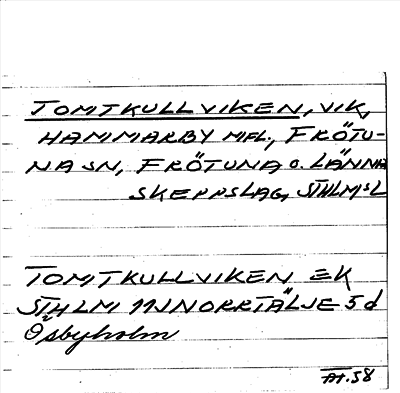 TOMTKULLVIKEN, VIK,
HAMMARBY MFL., FRÖTU-
NA SN, FRÖTUNA O. LÄNNA
SKEPPSLAG, STHLMS L
TOMTKULLVIKEN EK
STHLM 11J NORRTÄLJE 5 d
Osbyholm
AT. 58